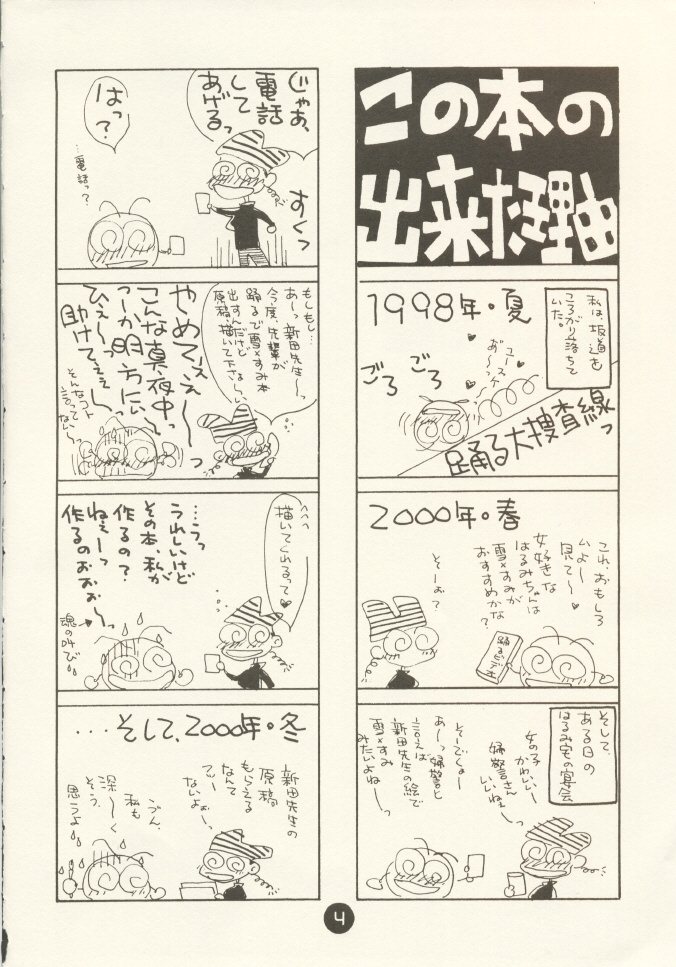 この本の
出来た理由
私は、坂道を
ころがり落ちて
いた。
1998年。夏
ユースケ
あ゛〜っ
ごろ
ごろ
踊る大捜査線っ
2000年。春
これ、おもしろ
いよー
見て〜♥
女好きな
はるみちゃんは
雪×すみが
おすすめかな？
踊るビデオ
そーお？
そして、
ある日の
はるみ宅の宴会
女の子
かわいいー
婦警さん
いいねぇ〜っ
そーでくぁー
あーっ婦警と
言えば
新田先生の絵で
雪×すみ
みたいよねーっ
じゃあ、
電話
して
あげるっ
すくっ
はっ？
…電話っ？
もしもし…
あーっ新田先生〜っ
今度、先輩が
踊るで雪×すみ本
出すんだけど
原稿、描いて下さぁーい
やめてぇえ〜っ
こんな真夜中っ
つーか明方にいっ
ひえぇ〜っ
助けてぇぇ〜
そんなコト
言ってない〜っ
へへっ
描いてくれるって♥
…うっ
うれしいけど
その本、私が
作るの？
ねぇーっ
作るのおおお〜っ
魂の叫び
…そして、2000年。冬
新田先生の
原稿
もらえる
なんて
アッー
ないよぉーっ
うん、
私も
深〜く
そう、
思うよ
4